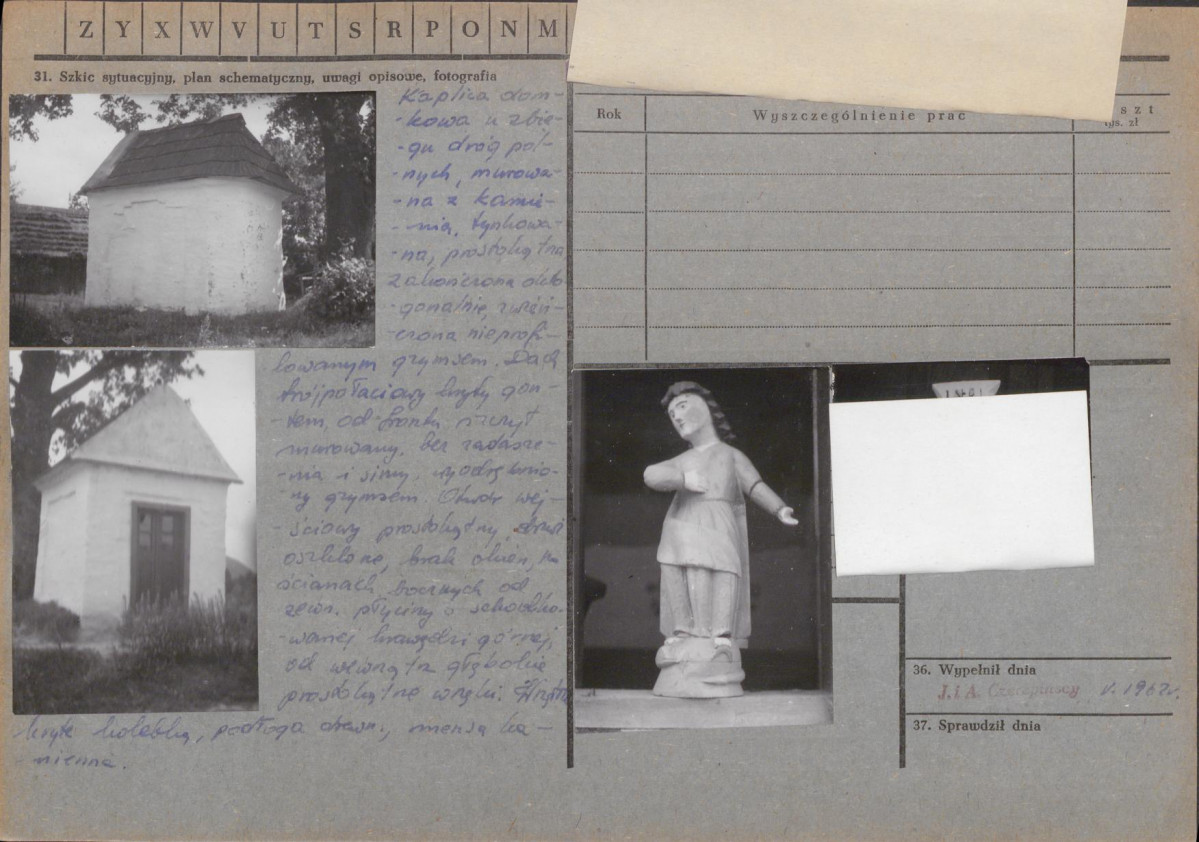 Z Y X W V U T S R P O N M
31. Szkic sytuacyjny, plan schematyczny, uwagi opisowe, fotografia
Kaplica dom-
-kowa u zbie-
-gu dróg pol-
-nych, murowa-
-na z kamie-
-nia, tynkowa-
-na, prostokątna
zakończona okto
-gonalnie, zwień-
-czona nieprofi-
lowanym gzymsem. Dach
trójpołaciowy kryty gon-
-tem, od frontu szczyt
murowany, bez zadasze-
-nia i simy, wyodrębnio-
ny gzymsem. Otwór wej-
-ściowy prostokątny, drzwi
oszklone, brak okien, na
ścianach bocznych od
zewn. płyciny o schodko-
-wanej krawędzi górnej,
od wewnątrz głębokie
prostokątne wnęki. Wnętrze
kryte kolebką, podłoga drewn., mensa ka-
-mienna.
Rok
Wyszczególnienie prac
szt
tys. zł
36. Wypełnił dnia
J. i A. Czerepińscy V. 1962r.
37. Sprawdził dnia